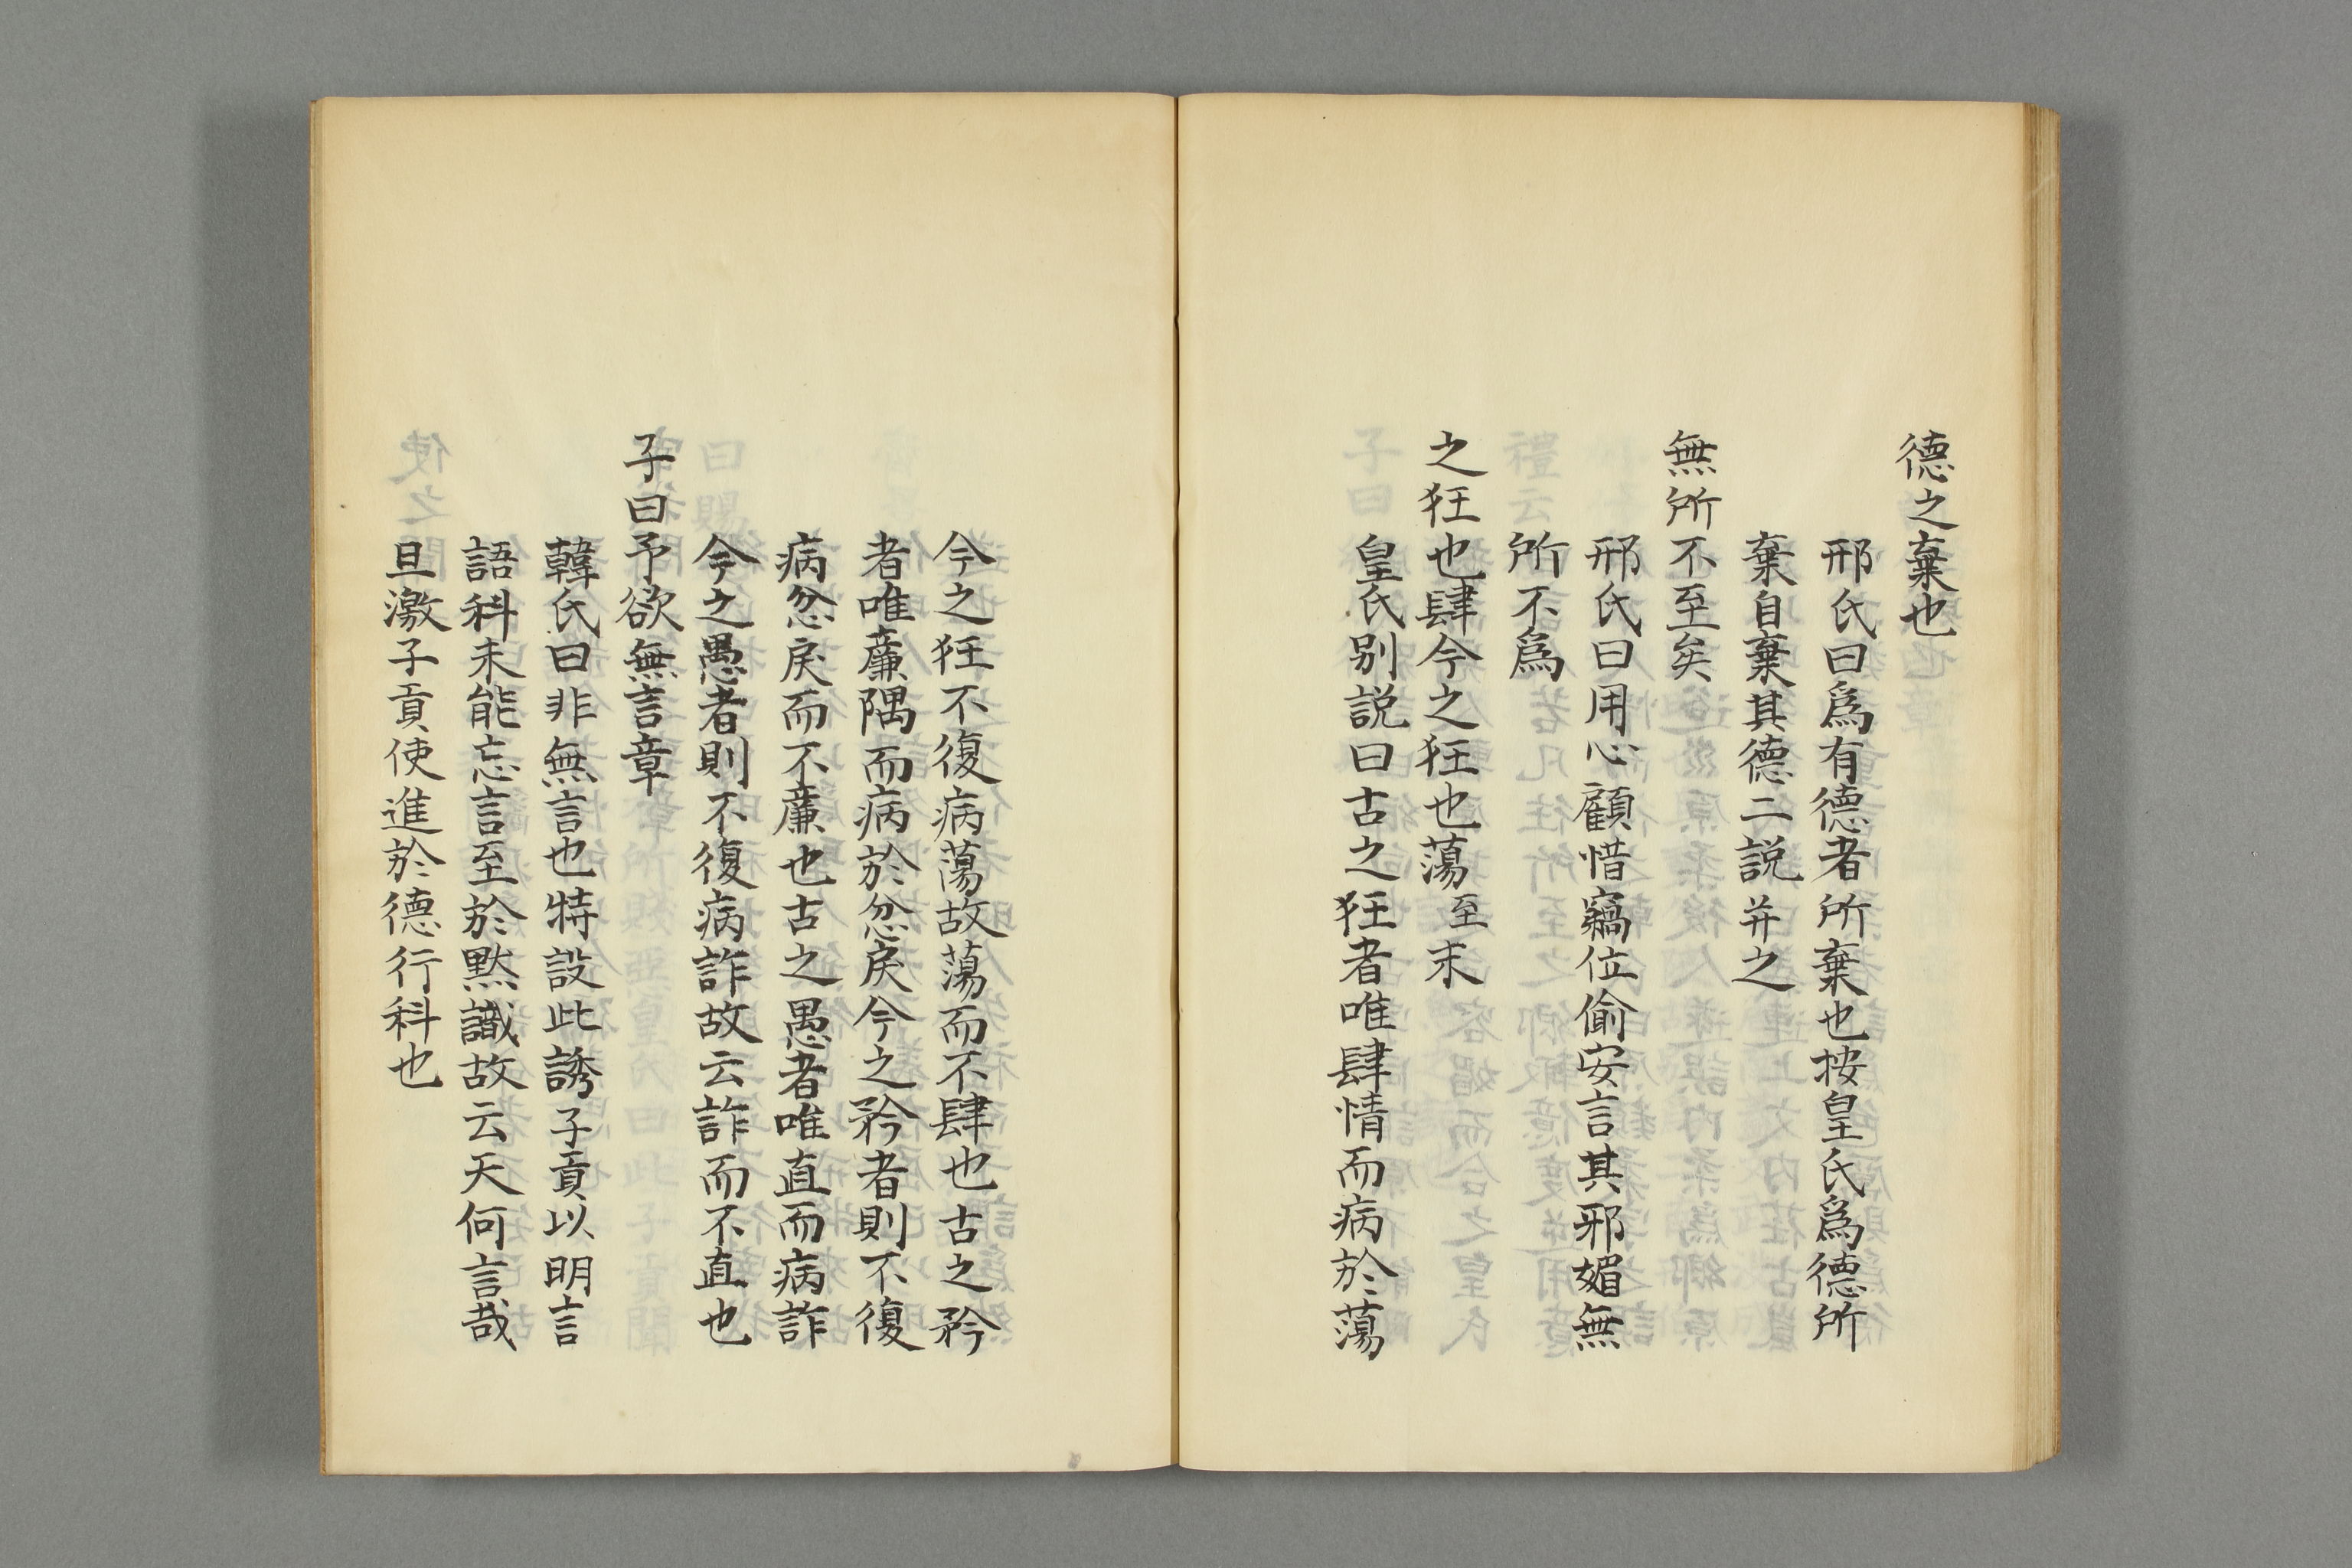 德之棄也
邢氏曰爲有德者所棄也按皇氏爲德所
棄自棄其德二説并之
無所不至矣
邢氏曰用心顧惜竊位偷安言其邪媚無
所不爲
之狂也肆今之狂也蕩至末
皇氏別説曰古之狂者唯肆情而病於蕩
今之狂不復病蕩故蕩而不肆也古之矜
者唯廉隅而病於忿戾今之矜者則不復
病忿戾而不廉也古之愚者唯直而病詐
今之愚者則不復病詐故云詐而不直也
子曰予欲無言章
韓氏曰非無言也特設此誘子貢以明言
語科未能忘言至於黙識故云天何言哉
且激子貢使進於德行科也